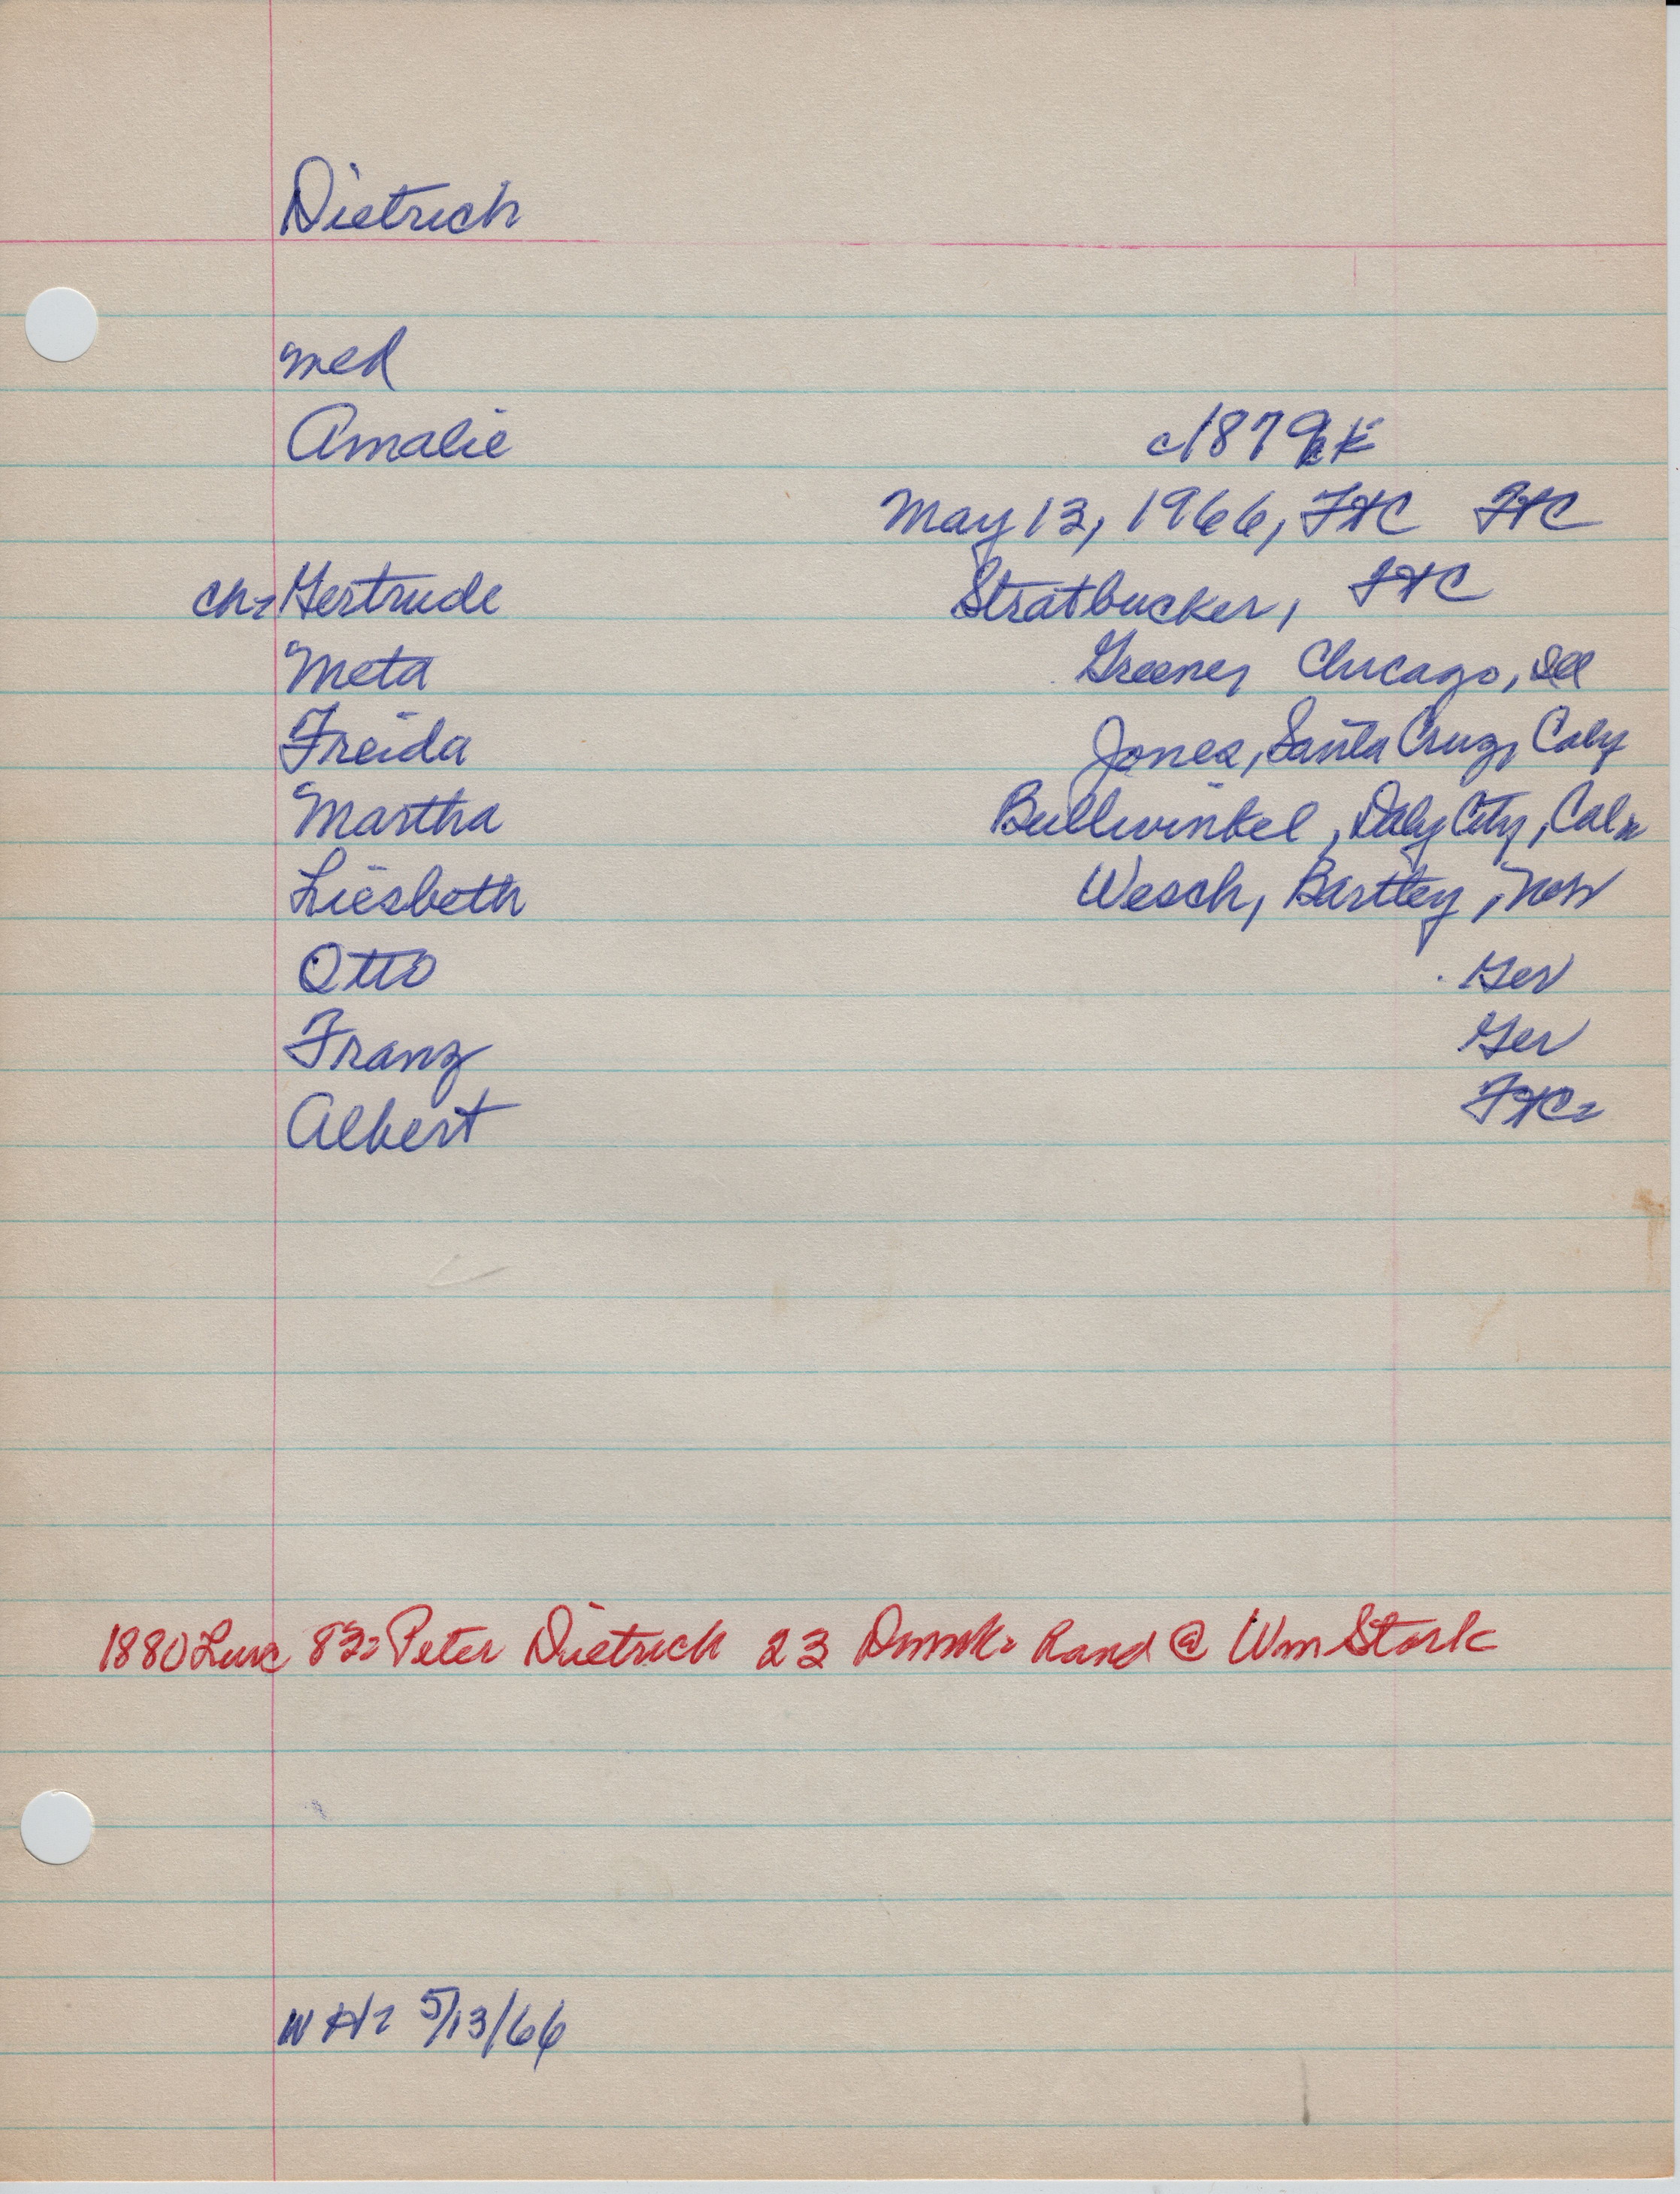 Dietrich
med
Amalie c1879
May 13, 1966, FHC FHC
ch- Gertrude Stratbucker, FHC
Meta Greener Chicago, Ill
Freida Jones, Santa Cruz, Calif
Martha Bullwinkel, Daly City, Calif
Liesbeth Wesch, Bartley, Neb
Otto Ger
Franz Ger
Albert FHC-
1880 83- Peter Dietrich 23 Denmk- Hand @ Wm Stork
WH- 5/13/66